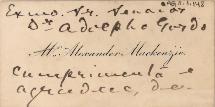 Exmo. Sr. Senador
Dr. Adolpho Gordo
Alexander Mackenzie
cumprimenta e
agradece